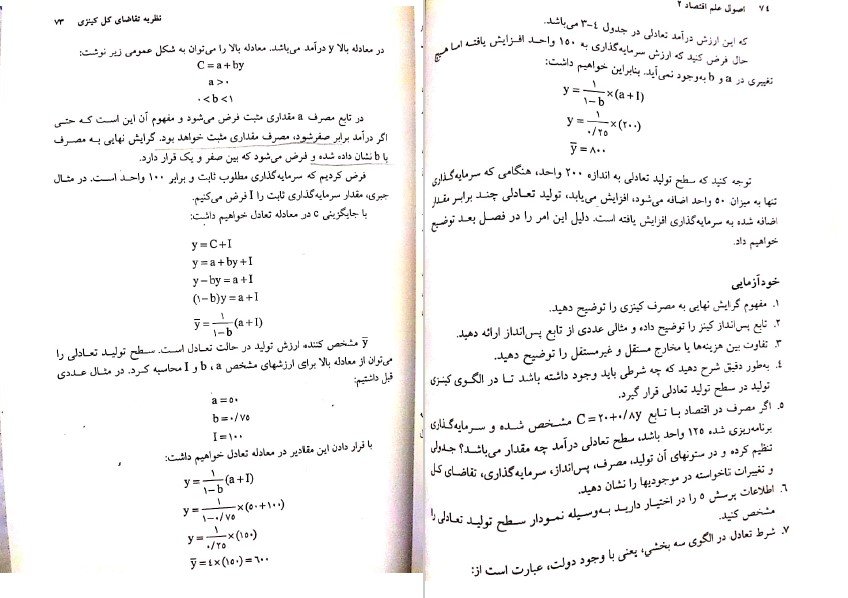 نظریه تقاضای کل کینزی ۷۳
در معادله بالا y درآمد می‌باشد. معادله بالا را می‌توان به شکل عمومی زیر نوشت:
C = a + by
a > ۰
۰ < b < ۱
در تابع مصرف a مقداری مثبت فرض می‌شود و مفهوم آن این است که حتی
اگر درآمد برابر صفر شود، مصرف مقداری مثبت خواهد بود. گرایش نهایی به مصرف
با b نشان داده شده و فرض می‌شود که بین صفر و یک قرار دارد.
فرض کردیم که سرمایه‌گذاری مطلوب ثابت و برابر ۱۰۰ واحد است. در مثال
جبری، مقدار سرمایه‌گذاری ثابت را I فرض می‌کنیم.
با جایگزینی c در معادله تعادل خواهیم داشت:
y = C + I
y = a + by + I
y − by = a + I
(۱−b)y = a + I
ȳ = ۱/(۱−b) (a + I)
ȳ مشخص کننده ارزش تولید در حالت تعادل است. سطح تولید تعادلی را
می‌توان از معادله بالا برای ارزشهای مشخص b ، a و I محاسبه کرد. در مثال عددی
قبل داشتیم:
a = ۵۰
b = ۰/۷۵
I = ۱۰۰
با قرار دادن این مقادیر در معادله تعادل خواهیم داشت:
y = ۱/(۱−b) (a + I)
y = ۱/(۱−۰/۷۵) × (۵۰+۱۰۰)
y = ۱/(۰/۲۵) × (۱۵۰)
ȳ = ۴ × (۱۵۰) = ۶۰۰
۷۴ اصول علم اقتصاد ۲
که این ارزش درآمد تعادلی در جدول ۴-۳ می‌باشد.
حال فرض کنید که ارزش سرمایه‌گذاری به ۱۵۰ واحد افزایش یافته اما هیچ
تغییری در a و b به‌وجود نمی‌آید. بنابراین خواهیم داشت:
y = ۱/(۱−b) × (a + I)
y = ۱/(۰/۲۵) × (۲۰۰)
ȳ = ۸۰۰
توجه کنید که سطح تولید تعادلی به اندازه ۲۰۰ واحد، هنگامی که سرمایه‌گذاری
تنها به میزان ۵۰ واحد اضافه می‌شود، افزایش می‌یابد، تولید تعادلی چند برابر مقدار
اضافه شده به سرمایه‌گذاری افزایش یافته است. دلیل این امر را در فصل بعد توضیح
خواهیم داد.
خودآزمایی
۱. مفهوم گرایش نهایی به مصرف کینزی را توضیح دهید.
۲. تابع پس‌انداز کینز را توضیح داده و مثالی عددی از تابع پس‌انداز ارائه دهید.
۳. تفاوت بین هزینه‌ها یا مخارج مستقل و غیرمستقل را توضیح دهید.
۴. به‌طور دقیق شرح دهید که چه شرطی باید وجود داشته باشد تا در الگوی کینزی
تولید در سطح تولید تعادلی قرار گیرد.
۵. اگر مصرف در اقتصاد با تابع C = ۲۰+۰/۸y مشخص شده و سرمایه‌گذاری
برنامه‌ریزی شده ۱۲۵ واحد باشد، سطح تعادلی درآمد چه مقدار می‌باشد؟ جدولی
تنظیم کرده و در ستونهای آن تولید، مصرف، پس‌انداز، سرمایه‌گذاری، تقاضای کل
و تغییرات ناخواسته در موجودیها را نشان دهید.
۶. اطلاعات پرسش ۵ را در اختیار دارید به‌وسیله نمودار سطح تولید تعادلی را
مشخص کنید.
۷. شرط تعادل در الگوی سه بخشی، یعنی با وجود دولت، عبارت است از: